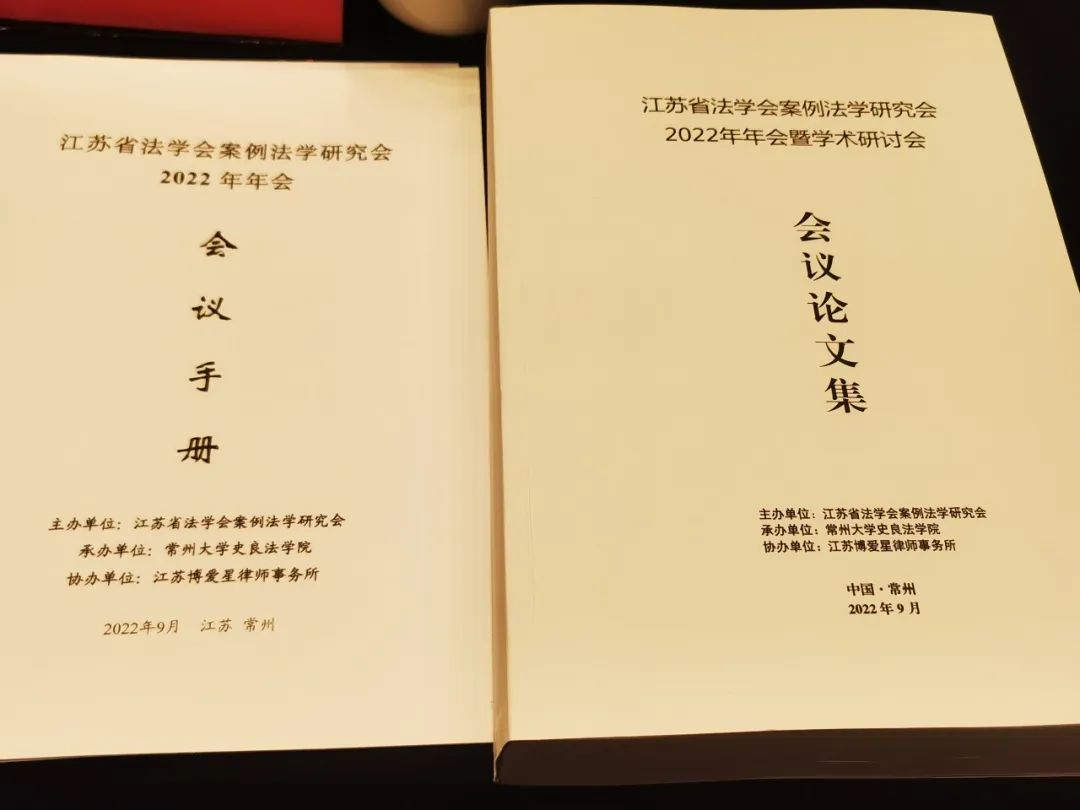 江苏省法学会案例法学研究会
2022 年年会
会
议
手
册
主办单位：江苏省法学会案例法学研究会
承办单位：常州大学史良法学院
协办单位：江苏博爱星律师事务所
2022年9月 江苏 常州
江苏省法学会案例法学研究会
2022年年会暨学术研讨会
会
议
论
文
集
主办单位：江苏省法学会案例法学研究会
承办单位：常州大学史良法学院
协办单位：江苏博爱星律师事务所
中国·常州
2022 年 9 月